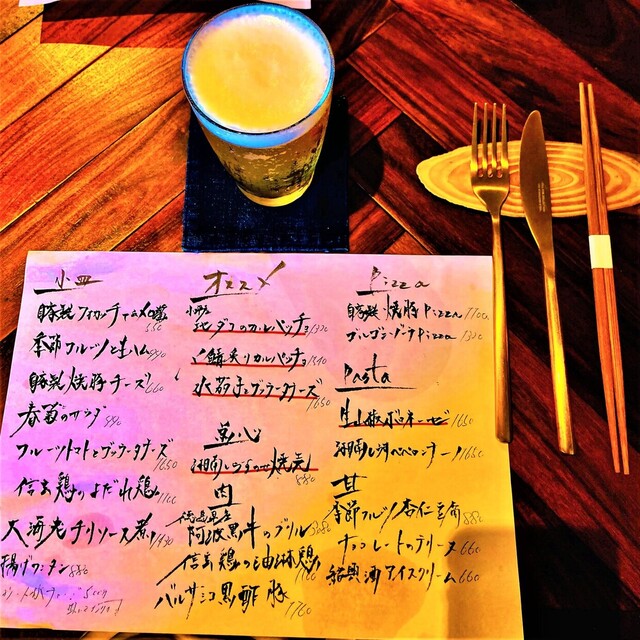 小皿
自家製
季節フルーツと生ハム 990
自家製焼豚チーズ 660
春菊のサラダ 990
フルーツトマトとブッラータチーズ 1650
信玄鶏のよだれ鶏 1100
大海老チリソース煮 1430
揚げワンタン 880
オススメ
地ダコのカルパッチョ 1320
炙りカルパッチョ 1540
水茄子とブッラータチーズ 1650
点心
湘南しらすの焼売 880
肉
徳島県産
阿波黒牛のグリル 3080
信玄鶏の油淋鶏 1100
バルサミコ黒酢酢豚 1760
Pizza
自家製焼豚Pizza 1100
ゴルゴンゾーラPizza 1320
Pasta
ボロネーゼ 1650
湘南しらすペペロンチーノ 1650
甘
季節フルーツ杏仁豆腐 880
チョコレートのテリーヌ 660
紹興酒アイスクリーム 660